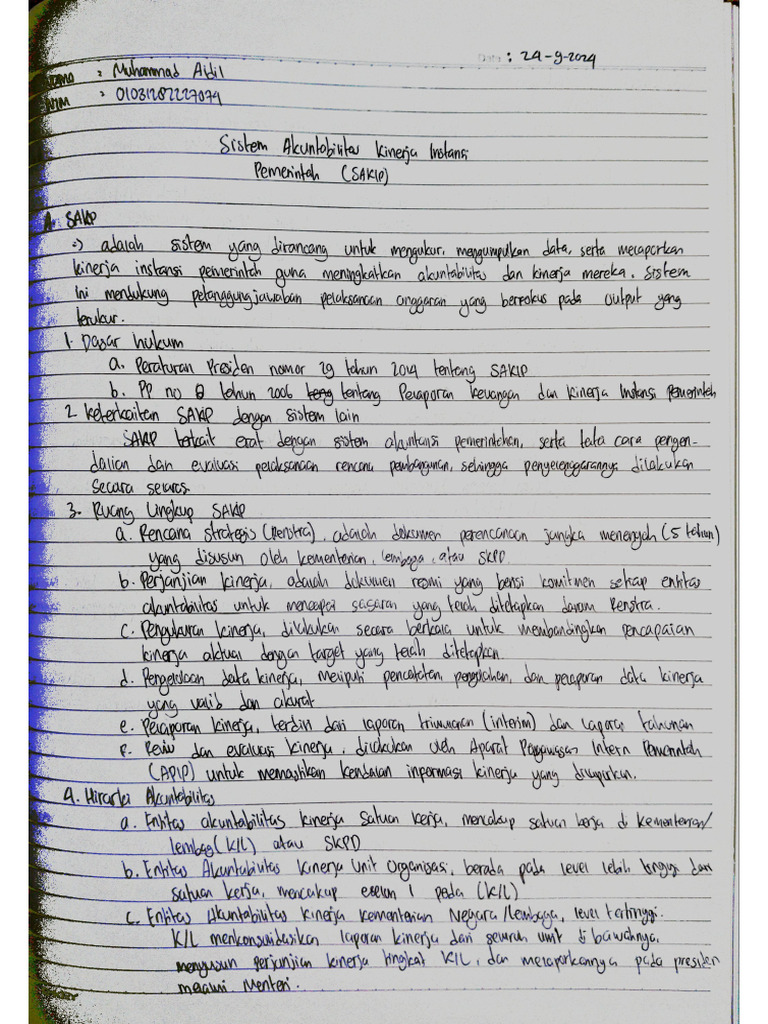 Date : 24-9-2024
Nama : Muhammad Aidil
NIM : 01031282227079
Sistem Akuntabilitas Kinerja Instansi
Pemerintah (SAKIP)
A. SAKIP
=) adalah sistem yang dirancang untuk mengukur, mengumpulkan data, serta melaporkan
kinerja instansi pemerintah guna meningkatkan akuntabilitas dan kinerja mereka. Sistem
ini mendukung petanggungjawaban pelaksanaan anggaran yang berfokus pada output yang
terukur.
1. Dasar hukum
a. Peraturan Presiden nomor 29 tahun 2014 tentang SAKIP
b. PP no 8 tahun 2006 tentang Pelaporan keuangan dan kinerja Instansi Pemerintah
2. keterkaitan SAKIP dengan sistem lain
SAKIP terkait erat dengan sistem akuntansi pemerintahan, serta tata cara pengen-
dalian dan evaluasi pelaksanaan rencana pembangunan, sehingga penyelenggarannya dilakukan
secara selaras.
3. Ruang Lingkup SAKIP
a. Rencana strategis (Renstra), adalah dokumen perencanaan jangka menengah (5 tahun)
yang disusun oleh kementerian, lembaga, atau SKPD.
b. Perjanjian kinerja, adalah dokumen resmi yang berisi komitmen setiap entitas
akuntabilitas untuk mencapai sasaran yang telah ditetapkan dalam Renstra.
c. Pengukuran kinerja, dilakukan secara berkala untuk membandingkan pencapaian
kinerja aktual dengan target yang telah ditetapkan.
d. Pengelolaan data kinerja, meliputi pencatatan, pengolahan, dan pelaporan data kinerja
yang valid dan akurat
e. Pelaporan kinerja, terdiri dari laporan triwulanan (interim) dan laporan tahunan
F. Reviu dan evaluasi kinerja, dilakukan oleh Aparat Pengawasan Intern Pemerintah
(APIP) untuk memastikan keandalan informasi kinerja yang dilaporkan.
4. Hirarki Akuntabilitas
a. Entitas akuntabilitas kinerja satuan kerja, mencakup satuan kerja di kementerian/
lembag (K/L) atau SKPD
b. Entitas Akuntabilitas kinerja Unit Organisasi, berada pada level lebih tinggi dari
satuan kerja, mencakup eselon 1 pada (K/L)
c. Entitas Akuntabilitas kinerja kementerian Negara/lembaga, level tertinggi.
K/L menkonsolidasikan laporan kinerja dari seluruh unit di bawahnya,
menyusun perjanjian kinerja tingkat K/L, dan melaporkannya pada presiden
melalui Menteri.